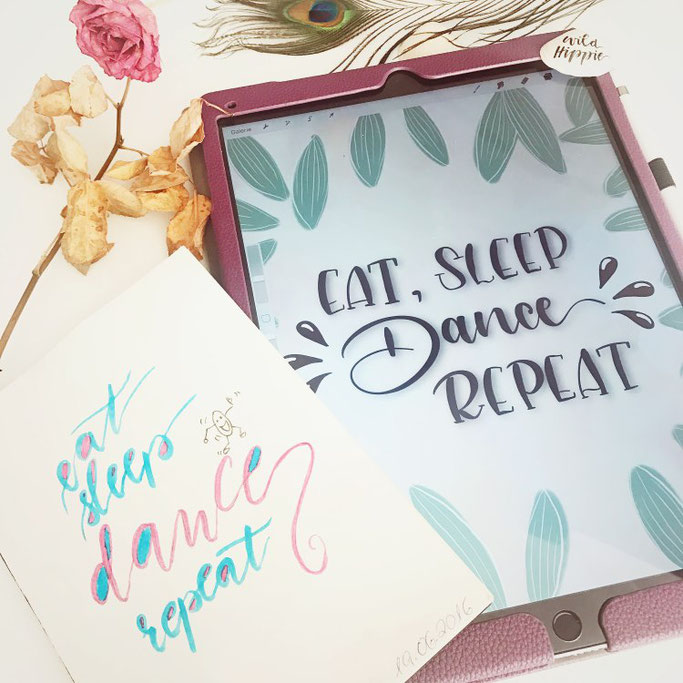 Wild
Hippie
Galerie
EAT, SLEEP
Dance
REPEAT
eat
sleep
dance
repeat
19.06.2016